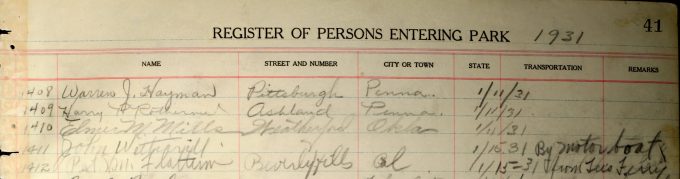 41
REGISTER OF PERSONS ENTERING PARK 1931
NAME STREET AND NUMBER CITY OR TOWN STATE TRANSPORTATION REMARKS
1408 Warren J. Hayman Pittsburgh Penna. 1/11/31
1409 Harry Ashland Penna. 1/11/31
1410 Elmer Mills Weatherford Okla 1/11/31
1411 John 1/15 31 By motor boat
1412 Beverly Hills Cal 1/15-31 from Lees Ferry